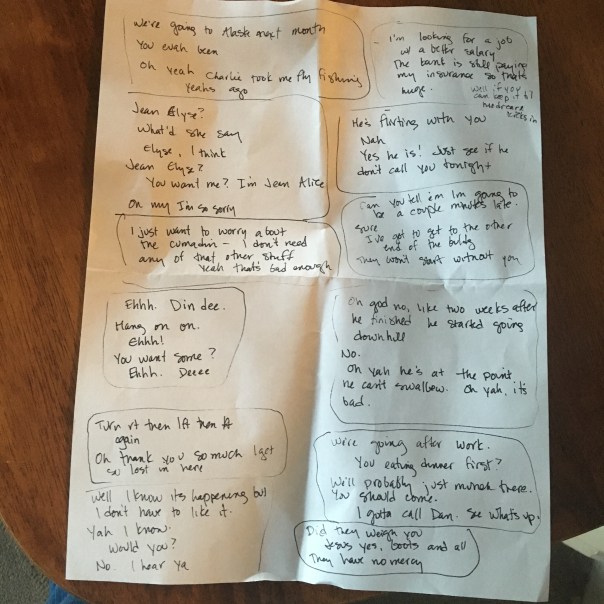 We're going to Alaska next month
You evah been
Oh yeah Charlie took me fly fishing
yeahs ago
Jean Elyse?
What'd she say
Elyse, I think
Jean Elyse?
You want me? I'm Jean Alice
Oh my I'm so sorry
I just want to worry about
the cumadin - I don't need
any of that other stuff
Yeah that's bad enough
Ehhh. Din dee.
Hang on on.
Ehhh!
You want some?
Ehhh. Deeee
Turn rt then lft then rt
again
Oh thank you so much I get
so lost in here
Well I know its happening but
I don't have to like it.
Yah I know.
Would you?
No. I hear ya
I'm looking for a job
w/ a better salary
The bank is still paying
my insurance so that's
huge.
Well if you
can keep it til
medicare
kicks in
He's flirting with you
Nah
Yes he is! Just see if he
don't call you tonight
Can you tell em Im going to
be a couple minutes late.
Sure
I've got to get to the other
end of the buldg
They won't start without you
Oh god no, like two weeks after
he finished he started going
downhill
No.
Oh yah he's at the point
he can't swallow. Oh yah, it's
bad.
We're going after work.
You eating dinner first?
We'll probably just munch there.
You should come.
I gotta call Dan. See whats up.
Did they weigh you
Jesus yes, boots and all
They have no mercy